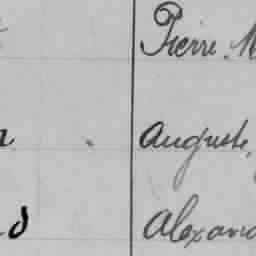 Pierre M
n Auguste,
d Alexand